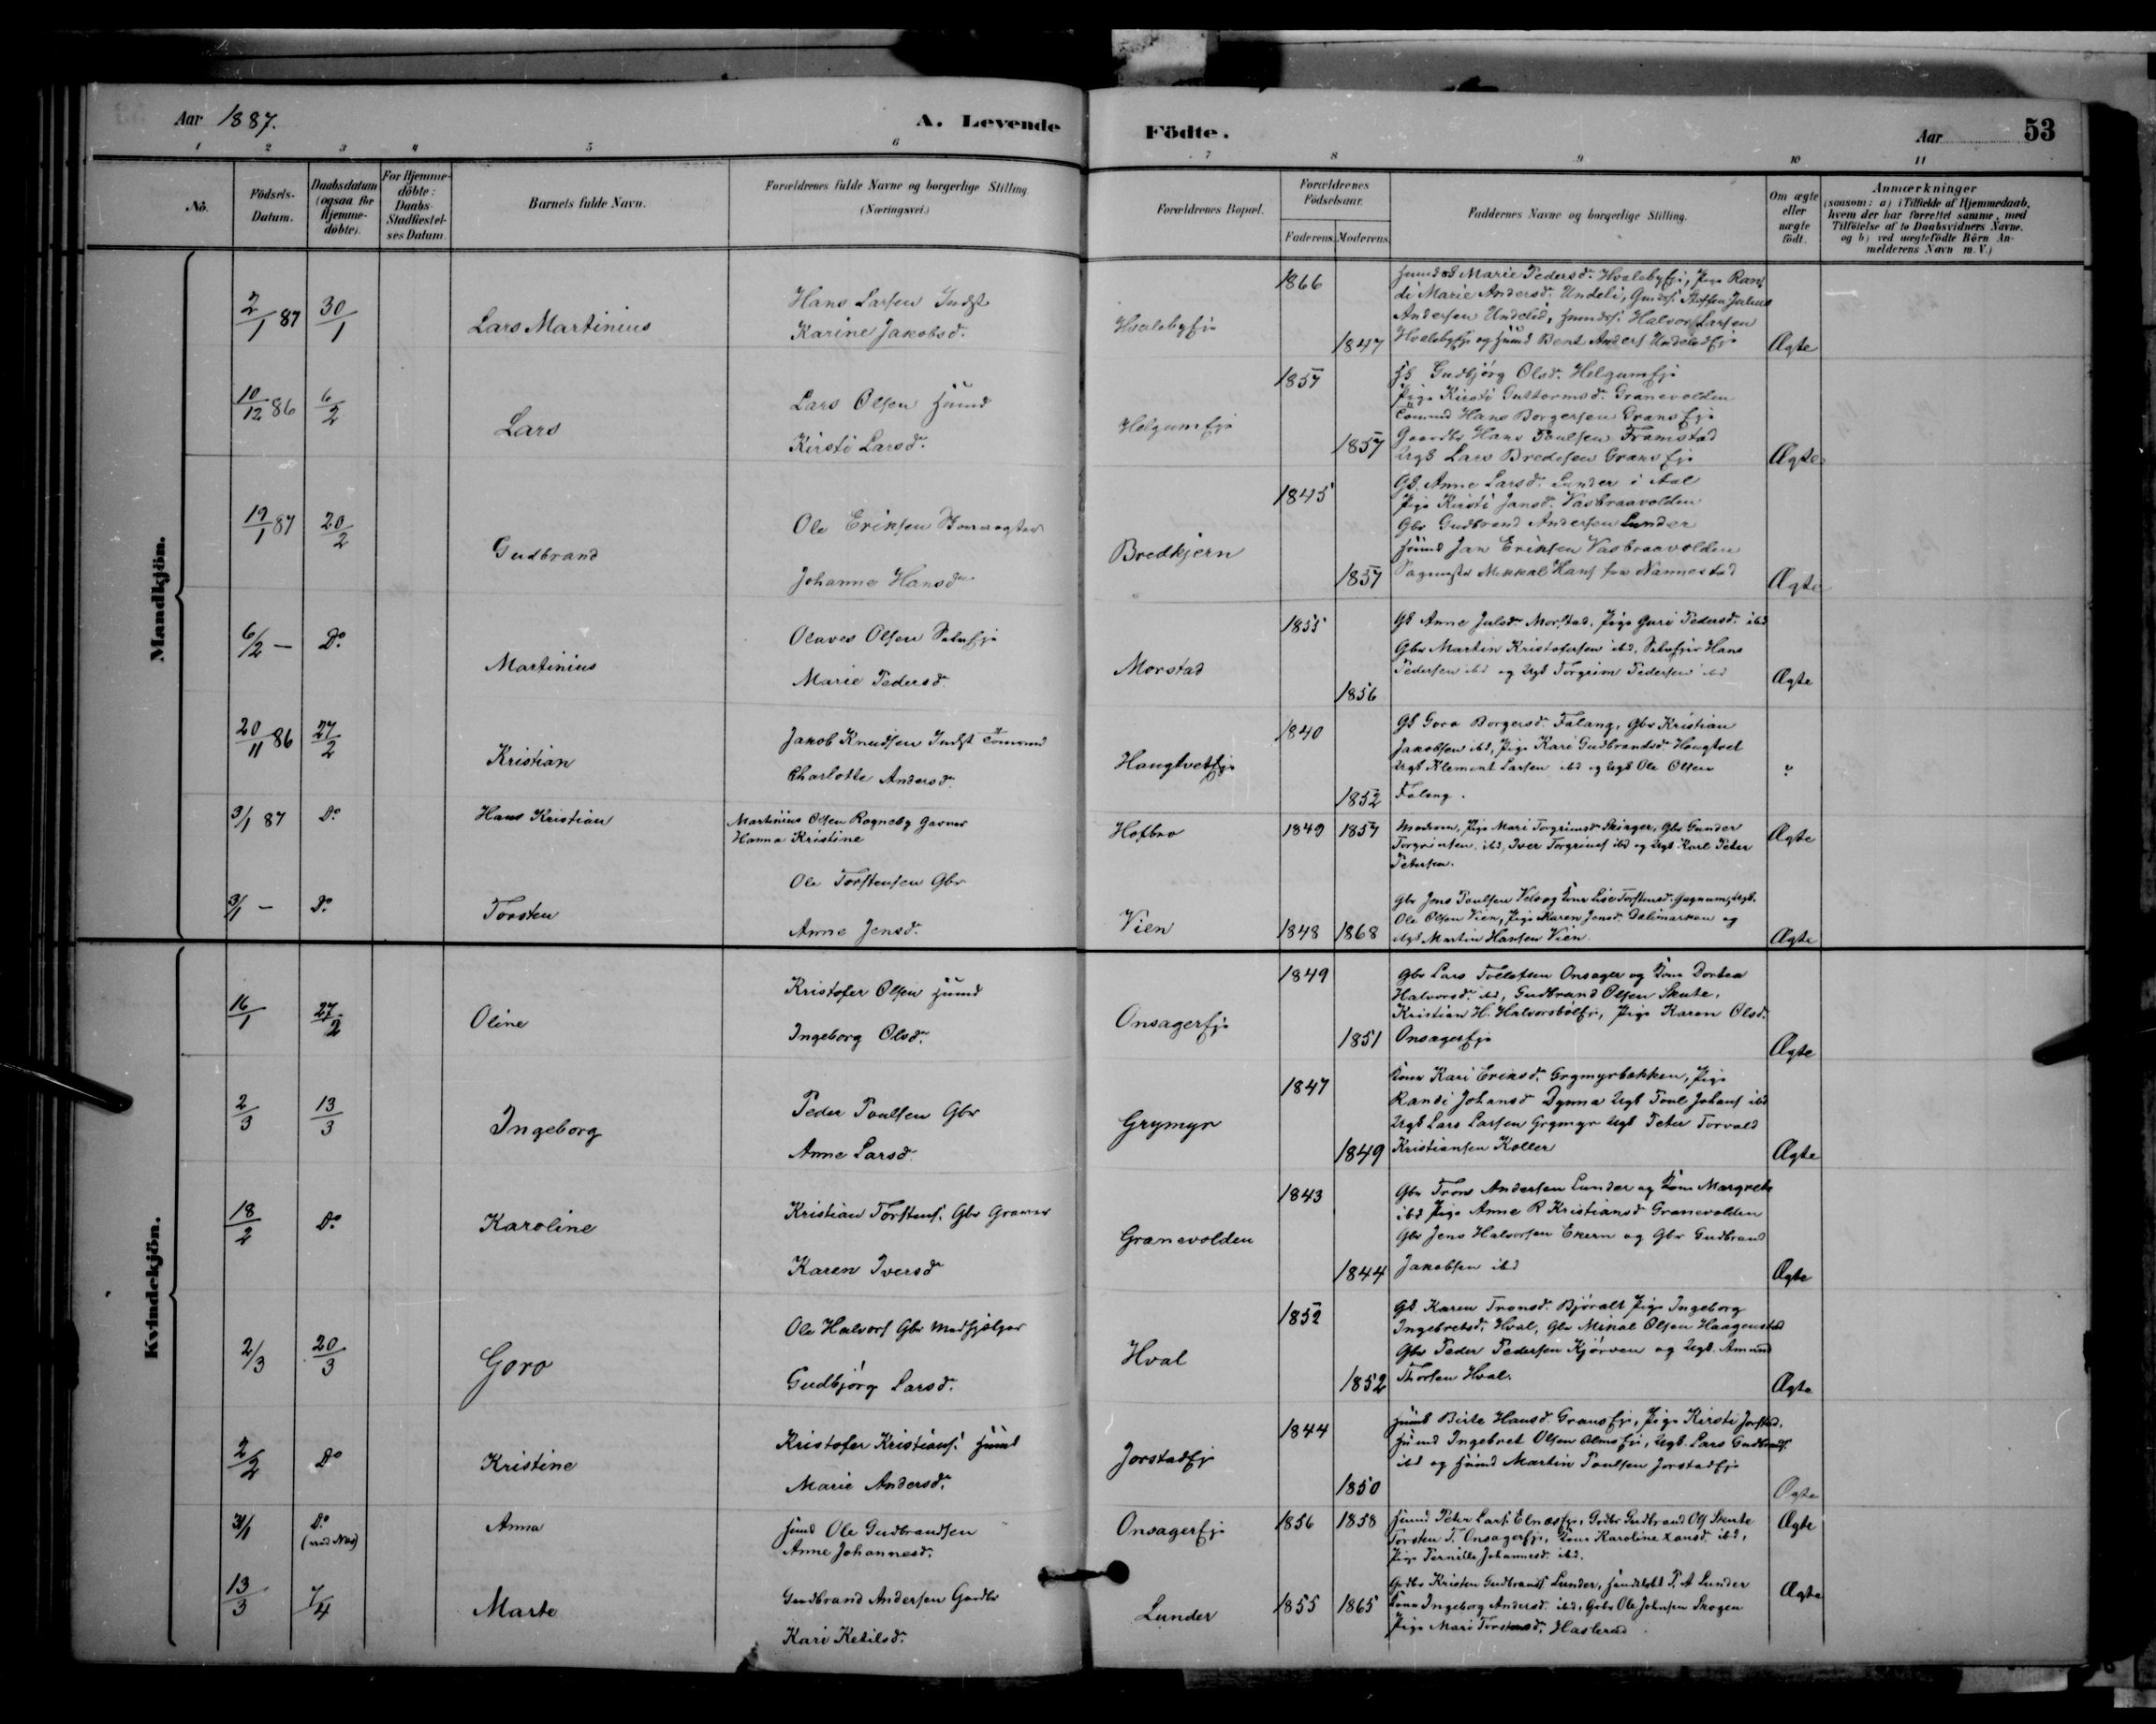 Aar 1887.
A. Levende Födte.
Aar 53
1 2 3 4 5 6 7 8 9 10 11
No.
Födsels-Datum.
Daabsdatum (ogsaa for Hjemme-döbte).
For Hjemme-döbte: Daabs-Stadfæstel-ses Datum.
Barnets fulde Navn.
Forældrenes fulde Navne og borgerlige Stilling (Næringsvei.)
Forældrenes Bopæl.
Forældrenes Födselsaar.
Faderens. Moderens.
Faddernes Navne og borgerlige Stilling.
Om ægte eller uægte født.
Anmærkninger
(saasom: a) i Tilfælde af Hjemmedaab,
hvem der har forrettet samme, med
Tilföielse af to Daabsvidners Navne.
og b) ved uægtefödte Börn An-
melderens Navn m. V.)
Mandkjön.
2/1 87 30/1 Lars Martinius
Hans Larsen Indst
Karine Jakobsd.
Hvalebyeje
1866 1847
Marie Pedersd. Hvalebyeje, Pige Ran
di Marie Andersd. Undeli, Julius
Andersen Undelid, Halvor Larsen
Hvalebyeje og Bent Anders Undelideje
Ægte
10/12 86 6/2 Lars
Lars Olsen Husmd
Kirsti Larsd.
Helgumeje
1857 1857
Gudbjörg Olsd. Helgumeje
Pige Kirsti Guttormsd. Granevolden
Hans Borgersen Granseje
Gaardbr Hans Poulsen Framstad
Ugk Lars Bredesen Granseje
Ægte
19/1 87 20/2 Gudbrand
Ole Eriksen
Johanne Hansd.
Bredkjern
1845 1857
Gk. Anne Larsd. Lunder i Aal
Pige Kirsti Jansd. Vasbraavolden
Gbr Gudbrand Andersen Lunder
Husmd Jan Eriksen Vasbraavolden
Mikkal Hans fra Nannestad
Ægte
6/2 — Do. Martinius
Olaves Olsen
Marie Pedersd.
Morstad
1855 1856
Gk Anne Julsd. Morstad, Pige Guri Pedersd. ibd
Gbr Martin Kristofersen ibd, Hans
Pedersen ibd og Ugk Torgrim Pedersen ibd
Ægte
20/11 86 27/2 Kristian
Jakob Knudsen Indst Tömmd
Charlotte Andersd.
Haugtveteje
1840 1852
Gk Goro Borgersd. Falang, Gbr Kristian
Jakobsen ibd, Pige Kari Gudbrandsd. Haugtvet
Ugk Klement Larsen ibd og Ugk Ole Olsen
Falang.
3/1 87 Do. Hans Kristian
Martinius Olsen Rogneby Garver
Hanna Kristine
Hofbro
1849 1857
Moderen, Pige Mari Torgrimsd. Skirger, Gbr Gunder
Torgrimsen ibd, Iver Torgrims ibd og Ugk Karl Peter
Petersen.
Ægte
3/1 — Do. Torsten
Ole Torstensen Gbr
Anne Jensd.
Vien
1848 1868
Gbr Jens Poulsen og Kone Lise Torstensd. Gagnum, Ugk.
Ole Olsen Vien, Pige Karen Jensd. Dalimarken og
Ugk Martin Hansen Vien.
Ægte
Kvindekjön.
16/1 27/2 Oline
Kristofer Olsen Husmd
Ingeborg Olsd.
Onsagereje
1849 1851
Gbr Lars Onsager og Kone Dortea
Halvorsd. ibd, Gudbrand Olsen Skute,
Kristian H. Halvorsböleje, Pige Karen Olsd.
Onsagereje
Ægte
2/3 13/3 Ingeborg
Peder Poulsen Gbr
Anne Larsd.
Grymyr
1847 1849
Kone Kari Eriksd. Grymyrbakken, Pige
Randi Johansd Dynna Ugk Poul Johans ibd
Ugk Lars Larsen Grymyr Ugk Peter Torvald
Kristiansen Koller
Ægte
18/2 Do Karoline
Kristian Torstens. Gbr
Karen Iversd
Granevolden
1843 1844
Gbr Trons Andersen Lunder og Kone Margrete
ibd Pige Anne R Kristiansd Granevolden
Gbr Jens Halvorsen Ekern og Gbr Gudbrand
Jakobsen ibd
Ægte
2/3 20/3 Goro
Ole Halvors Gbr Medhjælper
Gudbjörg Larsd.
Hval
1852 1852
Gk. Karen Tronsd. Björalt Pige Ingeborg
Ingebretsd. Hval, Gbr Mikal Olsen Haagenstad
Gbr Peder Pedersen Kjörven og Ugk. Amund
Thorsen Hval.
Ægte
2/2 Do Kristine
Kristofer Kristians. Husmd
Marie Andersd.
Jorstadeje
1844 1850
Birte Hansd. Granseje, Pige Kirsti Jorstad,
Husmd Ingebret Olsen Almseje, Ugk. Lars Gudbrands.
ibd og Husmd Martin Poulsen Jorstadeje
Ægte
31/1 Do. (ved Næs) Anna
Husmd Ole Gudbrandsen
Anne Johannesd.
Onsagereje
1856 1858
Husmd Peter Lars. Elnæseje, Grdbr Gudbrand Ols Skute
Torsten T. Onsagereje, Kone Karoline Hansd. ibd,
Pige Pernille Johannesd. ibd.
Ægte
13/3 7/4 Marte
Gudbrand Andersen Gardbr
Kari Ketilsd.
Lunder
1855 1865
Grdbr Kristen Gudbrands Lunder, P. A Lunder
Kone Ingeborg Andersd. ibd, Grbr Ole Johnsen Skogen
Pige Mari Torstensd. Haslerud.
Ægte